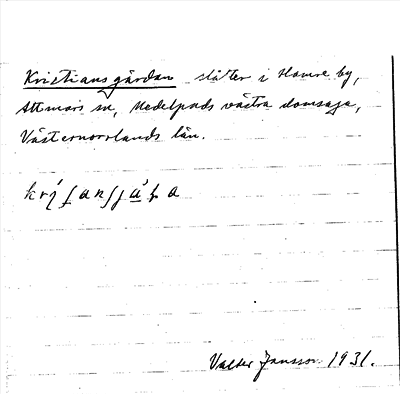 Kristiansgårdan slåtter i Hamre by,
Attmars sn, Medelpads västra domsaga,
Västernorrlands län.
Valter Jansson 1931.